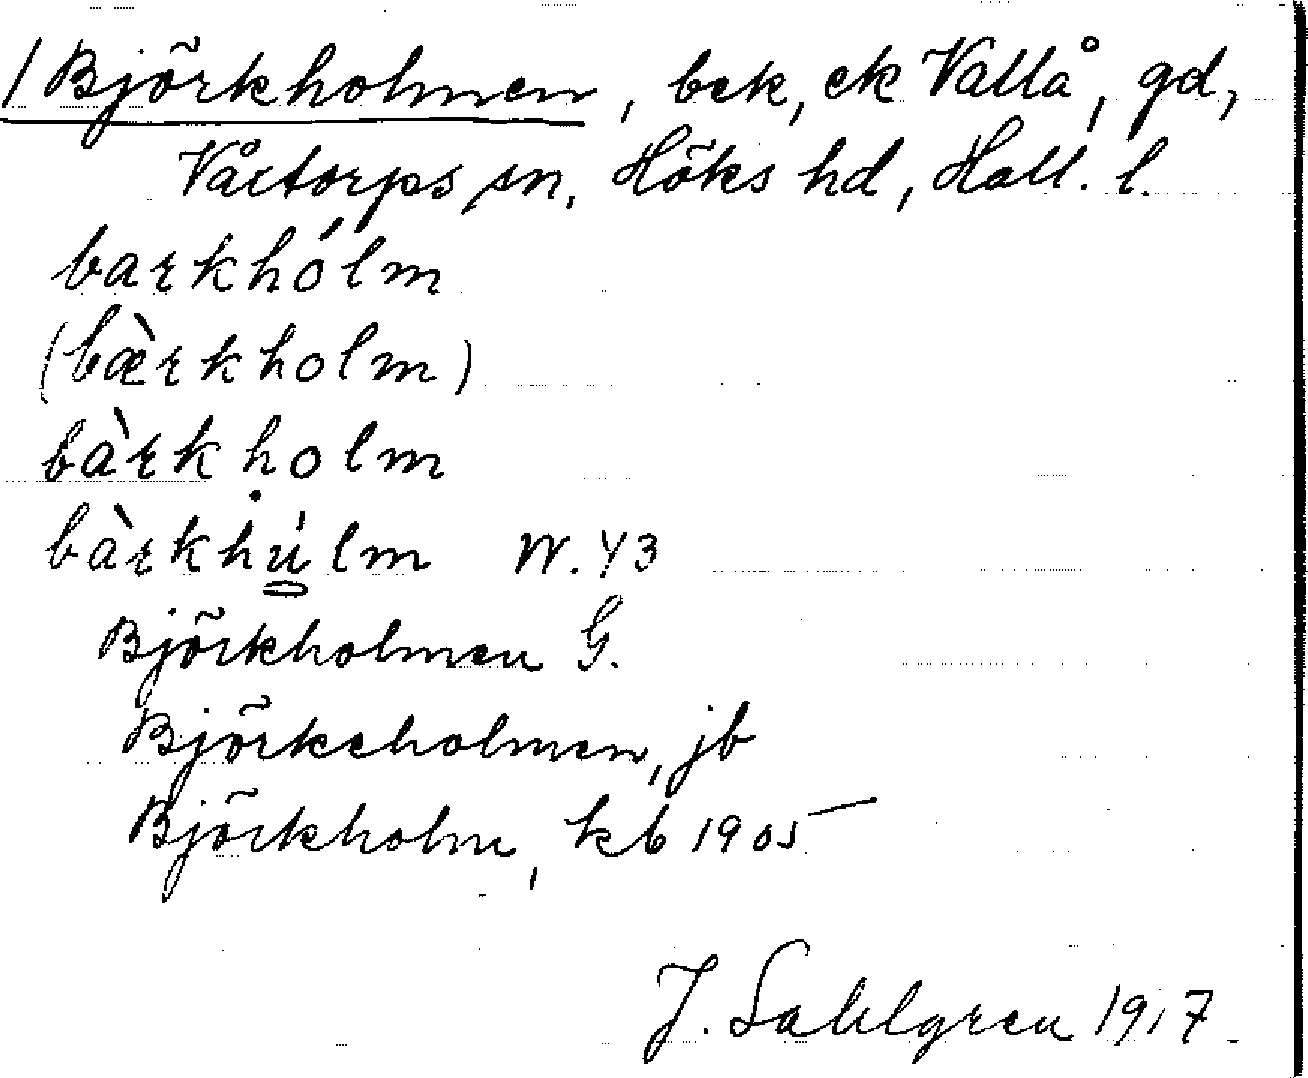 / Björkholmen, bek, ek Vallå, gd,
Våxtorps sn, Höks hd, Hall. l.
barkhólm
(bæ̀rkholm)
bàrkholm
bàrkhu̇lm W. 43
Björkholmen G.
Björkeholmen, jb
Björkholm, kb 1905
J. Sahlgren 1917